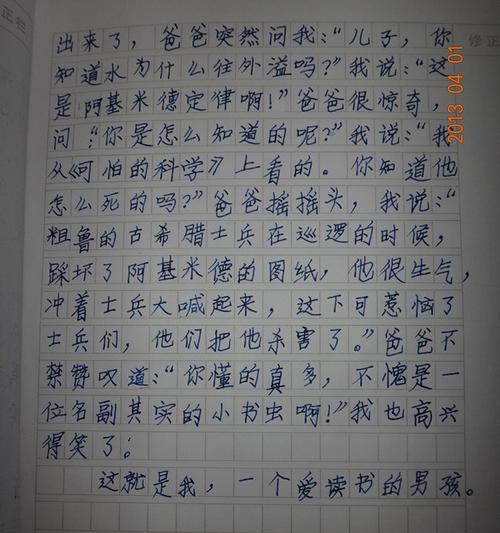 出来了，爸爸突然问我：“儿子，你
知道水为什么往外溢吗？”我说：“这
是阿基米德定律啊！”爸爸很惊奇，
问：“你是怎么知道的呢？”我说：“我
从《可怕的科学》上看的。你知道他
怎么死的吗？”爸爸摇摇头，我说：“
粗鲁的古希腊士兵在巡逻的时候，
踩坏了阿基米德的图纸，他很生气，
冲着士兵大喊起来，这下可惹恼了
士兵们，他们把他杀害了。”爸爸不
禁赞叹道：“你懂的真多，不愧是一
位名副其实的小书虫啊！”我也高兴
得笑了。
这就是我，一个爱读书的男孩。
2013 04 01
修正
正栏